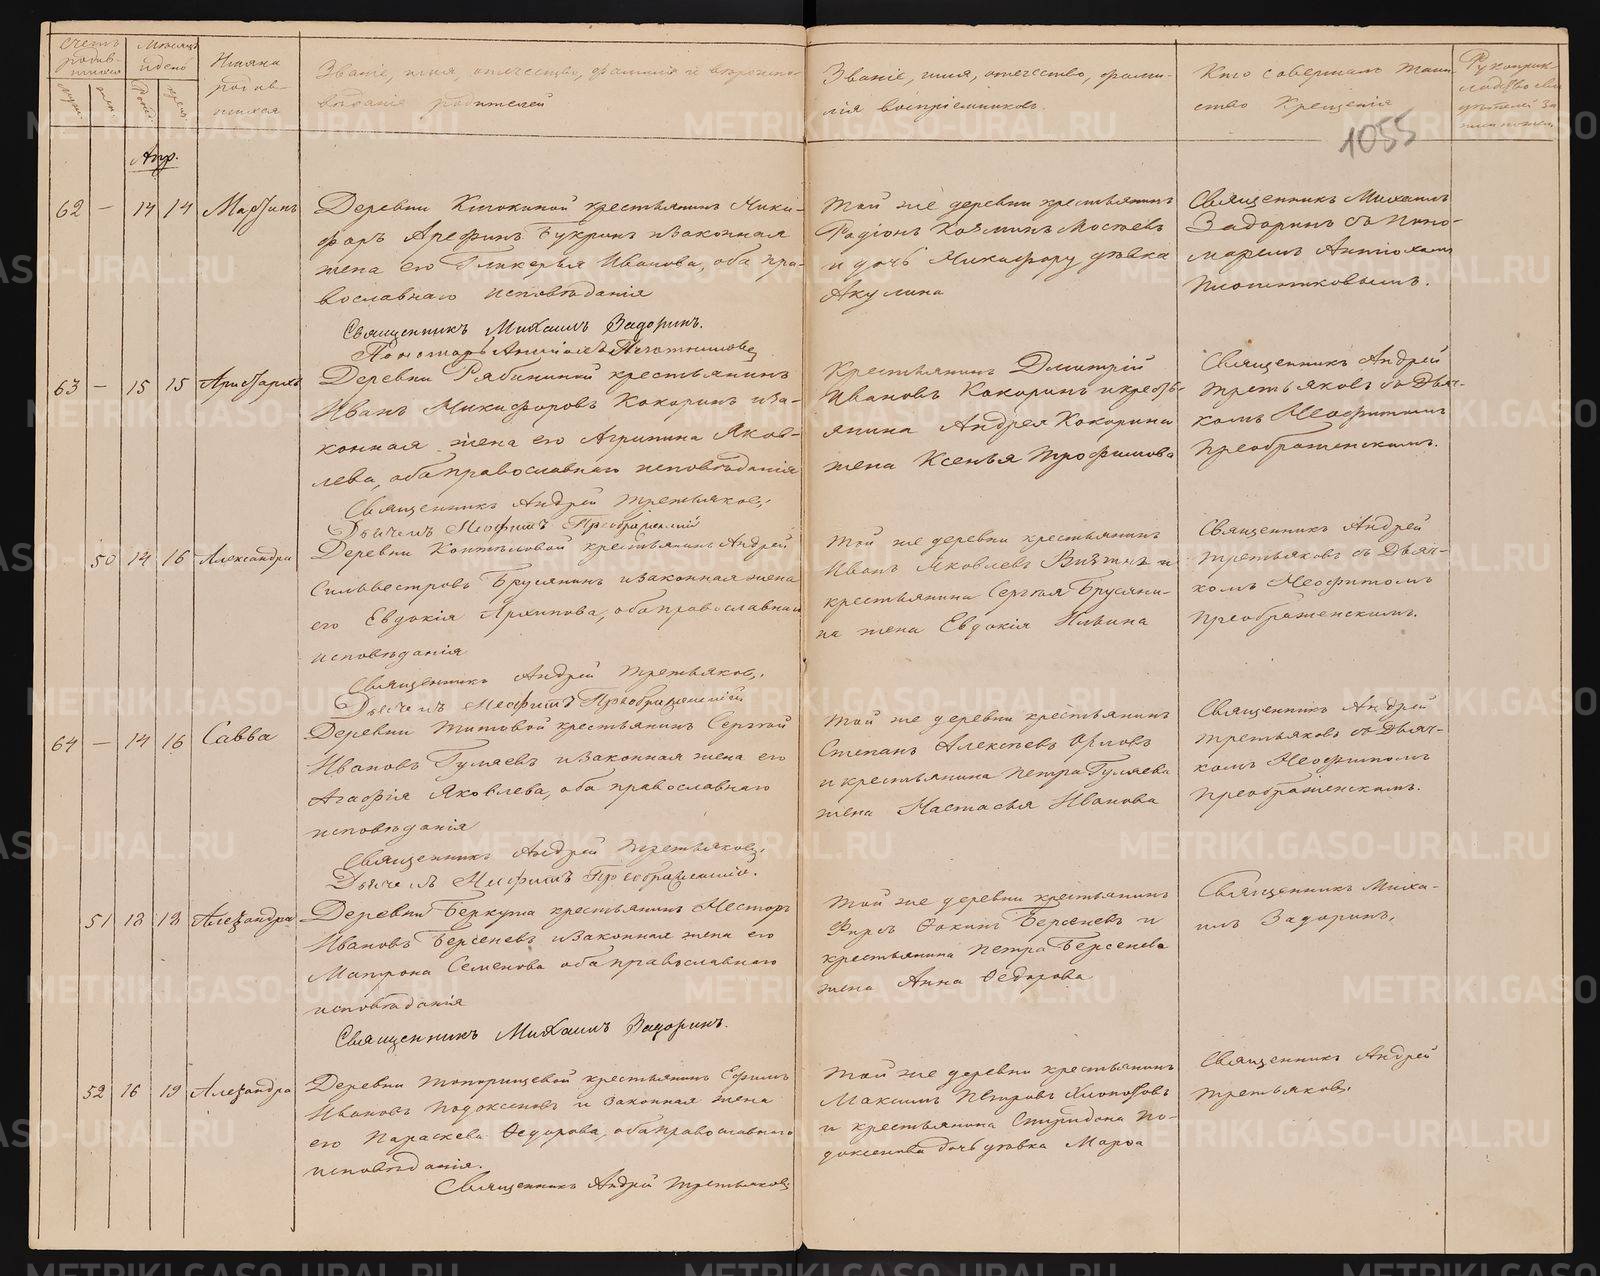 Счетъ родив-шихся
Мѣсяцъ и день
Имяна родив-шихся
Званіе, имя, отечество, фамилія и вѣроиспо-
вѣданіе родителей
Званіе, имя, отечество, фами-
лія воспріемниковъ
Кто совершалъ таин-
ство крещенія
Рукоприк-
ладство сви-
дѣтелей за-
писи
1055
Апр.
62 — 14 14 Мартинъ
Деревни Клюкиной крестьянинъ Ники-
форъ Арефинъ Букринъ и законная
жена его Гликерья Иванова, оба пра-
вославнаго исповѣданія
Священникъ Михаилъ Задоринъ.
Пономарь Антіохъ Плотниковъ
Той же деревни крестьянинъ
Радіонъ Козминъ Мостовъ
и дочь Никифору дѣвка
Акулина
Священникъ Михаилъ
Задоринъ съ Поно-
маремъ Антіохомъ
Плотниковымъ.
63 — 15 15 Аристархъ
Деревни Рябининой крестьянинъ
Иванъ Никифоровъ Кокоринъ и за-
конная жена его Агрипина Яков-
лева, оба православнаго исповѣданія
Священникъ Андрей Третьяковъ,
Дьячекъ Неофитъ Преображенскій
Крестьянинъ Дмитрій
Ивановъ Кокоринъ и кресть-
янина Андрея Кокорина
жена Ксенья Трофимова
Священникъ Андрей
Третьяковъ съ Дьяч-
комъ Неофитомъ
Преображенскимъ.
50 14 16 Александра
Деревни Коптяловой крестьянинъ Андрей
Сильвестровъ Брусянинъ и законная жена
его Евдокія Архипова, оба православнаго
исповѣданія
Священникъ Андрей Третьяковъ,
Дьячекъ Неофитъ Преображенскій
Той же деревни крестьянинъ
Иванъ Яковлевъ и
крестьянина Сергѣя Брусяни-
на жена Евдокія Ильина
Священникъ Андрей
Третьяковъ съ Дьяч-
комъ Неофитомъ
Преображенскимъ.
64 — 14 16 Савва
Деревни Титовой крестьянинъ Сергѣй
Ивановъ Гуляевъ и законная жена его
Агафія Яковлева, оба православнаго
исповѣданія
Священникъ Андрей Третьяковъ,
Дьячекъ Неофитъ Преображенскій.
Той же деревни крестьянинъ
Степанъ Алексѣевъ Орловъ
и крестьянина Петра Гуляева
жена Настасья Иванова
Священникъ Андрей
Третьяковъ съ Дьяч-
комъ Неофитомъ
Преображенскимъ.
51 13 13 Александра
Деревни Беркута крестьянинъ Несторъ
Ивановъ Берсеневъ и законная жена его
Матрона Семенова оба православнаго
исповѣданія
Священникъ Михаилъ Задоринъ.
Той же деревни крестьянинъ
Фирсъ Ѳокинъ Берсеневъ и
крестьянина Петра Берсенева
жена Анна Ѳедорова
Священникъ Миха-
илъ Задоринъ.
52 16 19 Александра
Деревни Топорищевой крестьянинъ Ефимъ
Ивановъ Подоксеновъ и законная жена
его Параскева Ѳедорова, оба православнаго
исповѣданія.
Священникъ Андрей Третьяковъ
Той же деревни крестьянинъ
Максимъ Петровъ
и крестьянина Спиридона По-
доксенова дочь дѣвка Марѳа
Священникъ Андрей
Третьяковъ.
METRIKI.GASO-URAL.RU